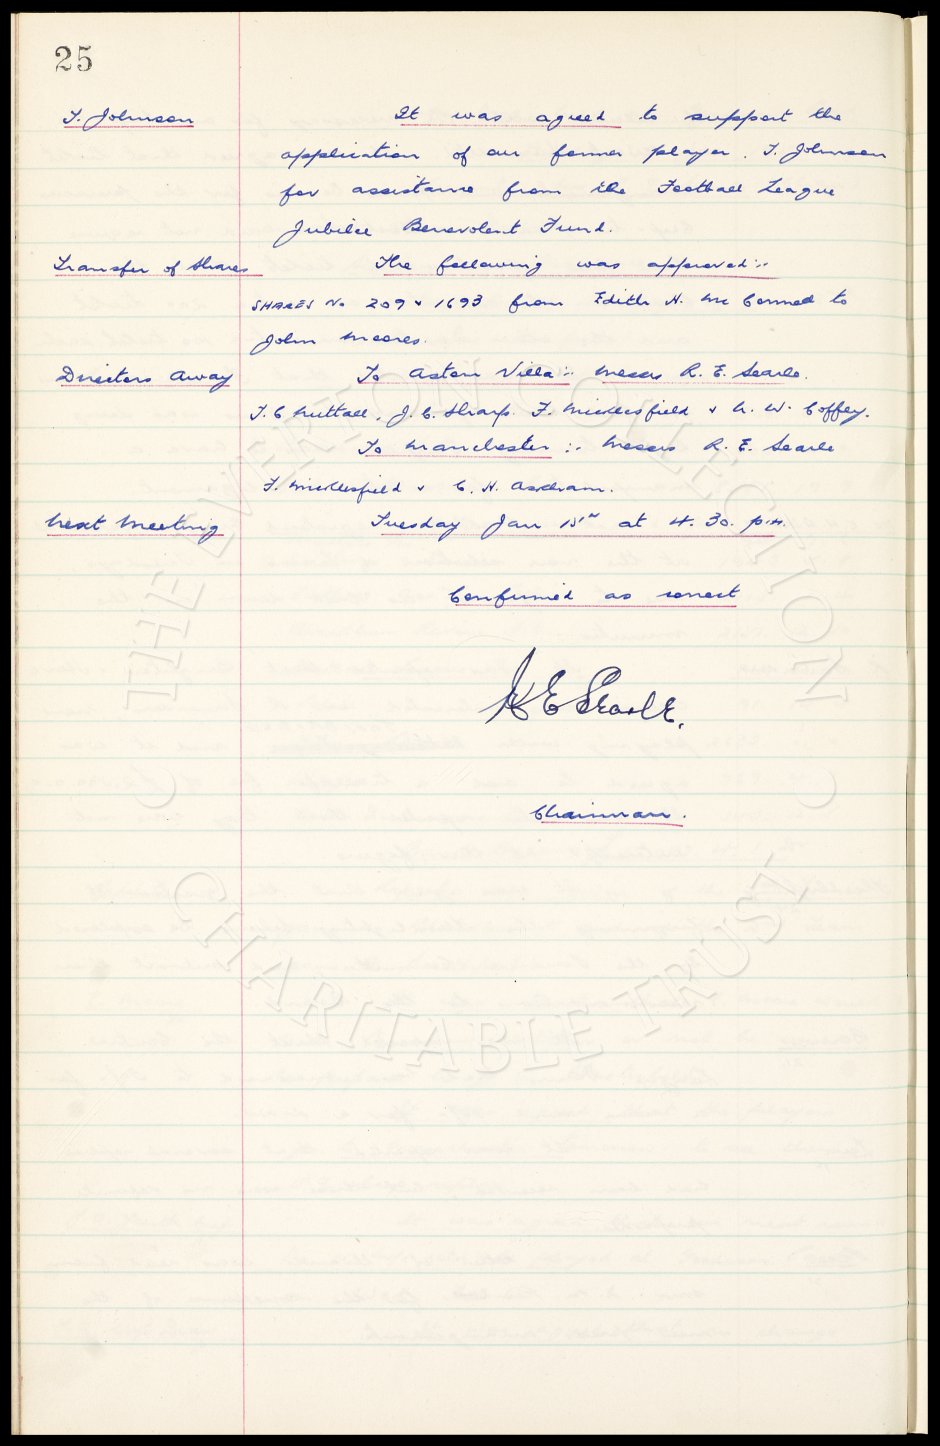 25
T. Johnson It was agreed to support the
application of our former player. T. Johnson
for assistance from the Football League
Jubilee Benevolent Fund.
Transfer of Shares The following was approved :-
SHARES No 209 & 1693 from Edith H. Mc Connell to
John Moores.
Directors Away To Aston Villa :- Messrs R. E. Searle.
T. C. Nuttall, J. C. Sharp. F. Micklesfield & N. W. Coffey.
To Manchester :- Messrs R. E. Searle
F. Micklesfield & C. H. Askham.
Next Meeting Tuesday Jan 15th at 4. 30. p.m.
Confirmed as correct
R E Searle.
Chairman.
© THE EVERTON COLLECTION
CHARITABLE TRUST